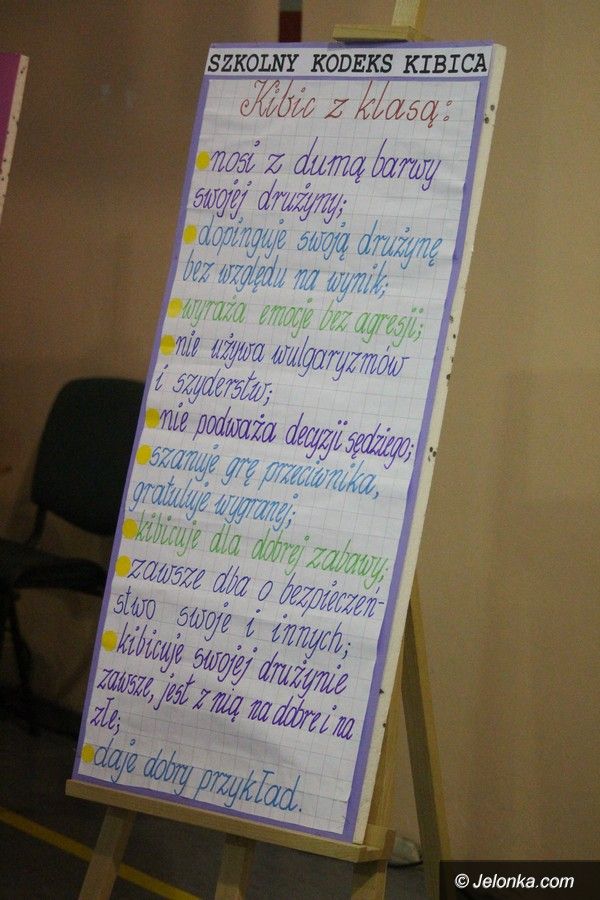 SZKOLNY KODEKS KIBICA
Kibic z klasą:
nosi z dumą barwy
swojej drużyny;
dopinguje swoją drużynę
bez względu na wynik;
wyraża emocje bez agresji;
nie używa wulgaryzmów
i szyderstw;
nie podważa decyzji sędziego;
szanuje grę przeciwnika,
gratuluje wygranej;
kibicuje dla dobrej zabawy;
zawsze dba o bezpieczeń-
stwo swoje i innych;
kibicuje swojej drużynie
zawsze, jest z nią na dobre i na
złe;
daje dobry przykład.
© Jelonka.com